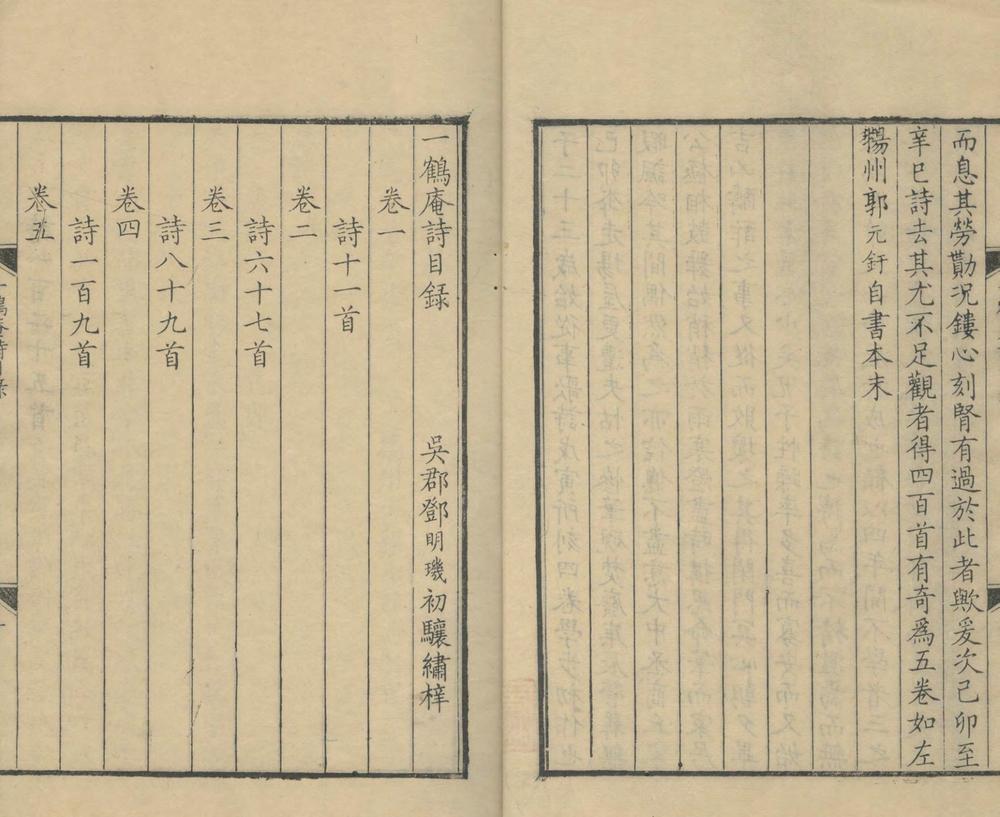 而息其勞勩况鏤心刻腎有過於此者歟爰次己卯至
辛巳詩去其尤不足觀者得四百首有奇爲五卷如左
揚州郭元釪自書本末
一鶴庵詩目録
吳郡鄧明璣初驤繡梓
卷一
詩十一首
卷二
詩六十七首
卷三
詩八十九首
卷四
詩一百九首
卷五